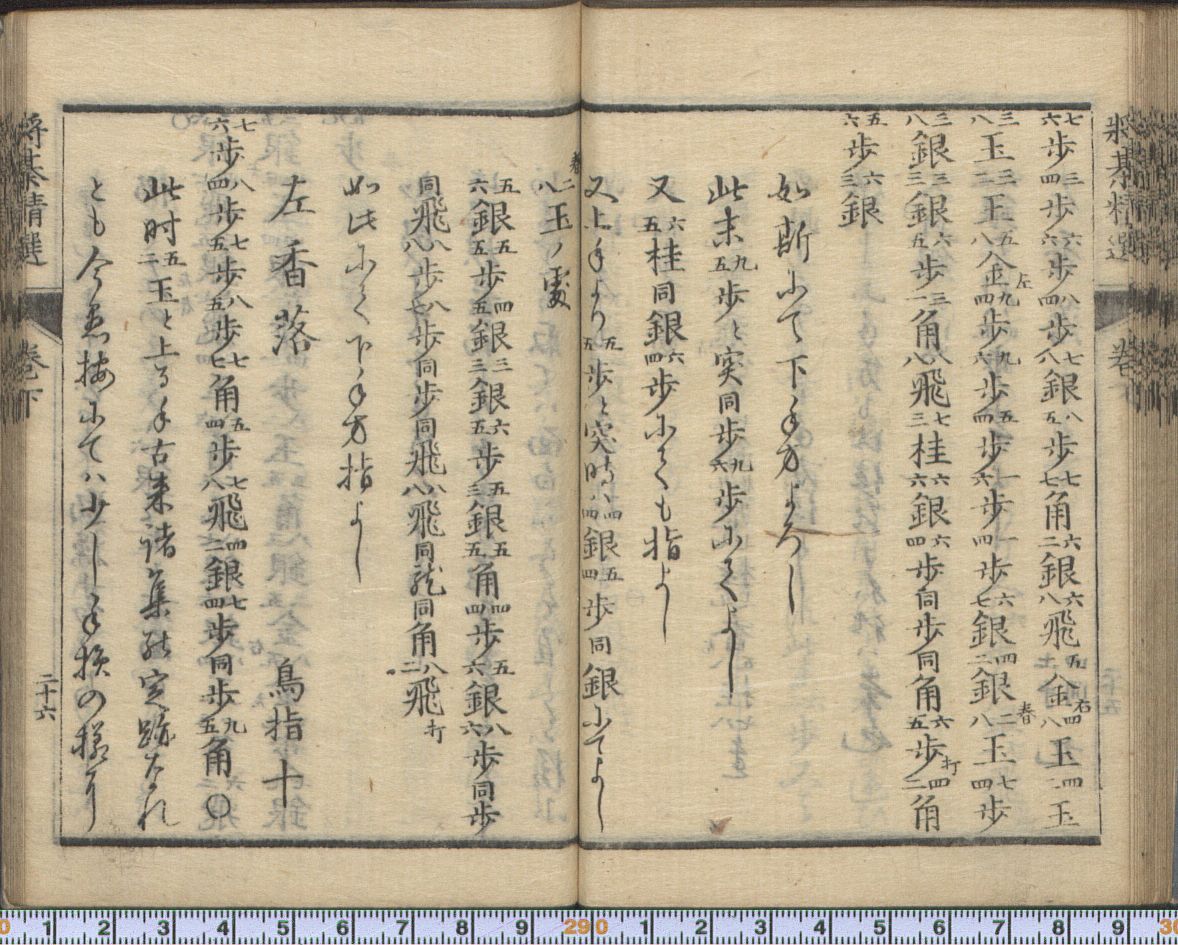 将棊精選 巻下
七六歩三四歩六六歩八四歩七八銀八五歩七七角六二銀六八飛五二金右四八玉四二玉
三八玉三二玉五八金左九四歩九六歩五四歩一六歩一四歩六七銀四二銀春二八玉七四歩
三八銀五三銀六五歩三一角八八飛七三桂六六銀六四歩同歩同角六五歩打四二角
五六歩六三銀
如斯にて下手方よろし
此末九五歩と突同歩九六歩にてよし
又六五桂同銀六四歩にても指よし
又上手より五五歩と突時ハ四四銀五四歩同銀にてよし
春二八玉ノ處
五六銀五五歩四五銀三三銀六五歩五三銀五五角四四歩五六銀八六歩同歩
同飛八八歩八七歩同歩同飛八八飛同龍同角八二飛打
如此にて下手方指よし
左香落 鳥指十
七六歩八四歩七五歩八五歩七七角五四歩七八飛四二銀七四歩同歩九五角〇
此时五二玉と上る手古来諸集能定跡なれ
とも今愚按にてハ少し手損の様なり
将棊精選 巻下 二十六